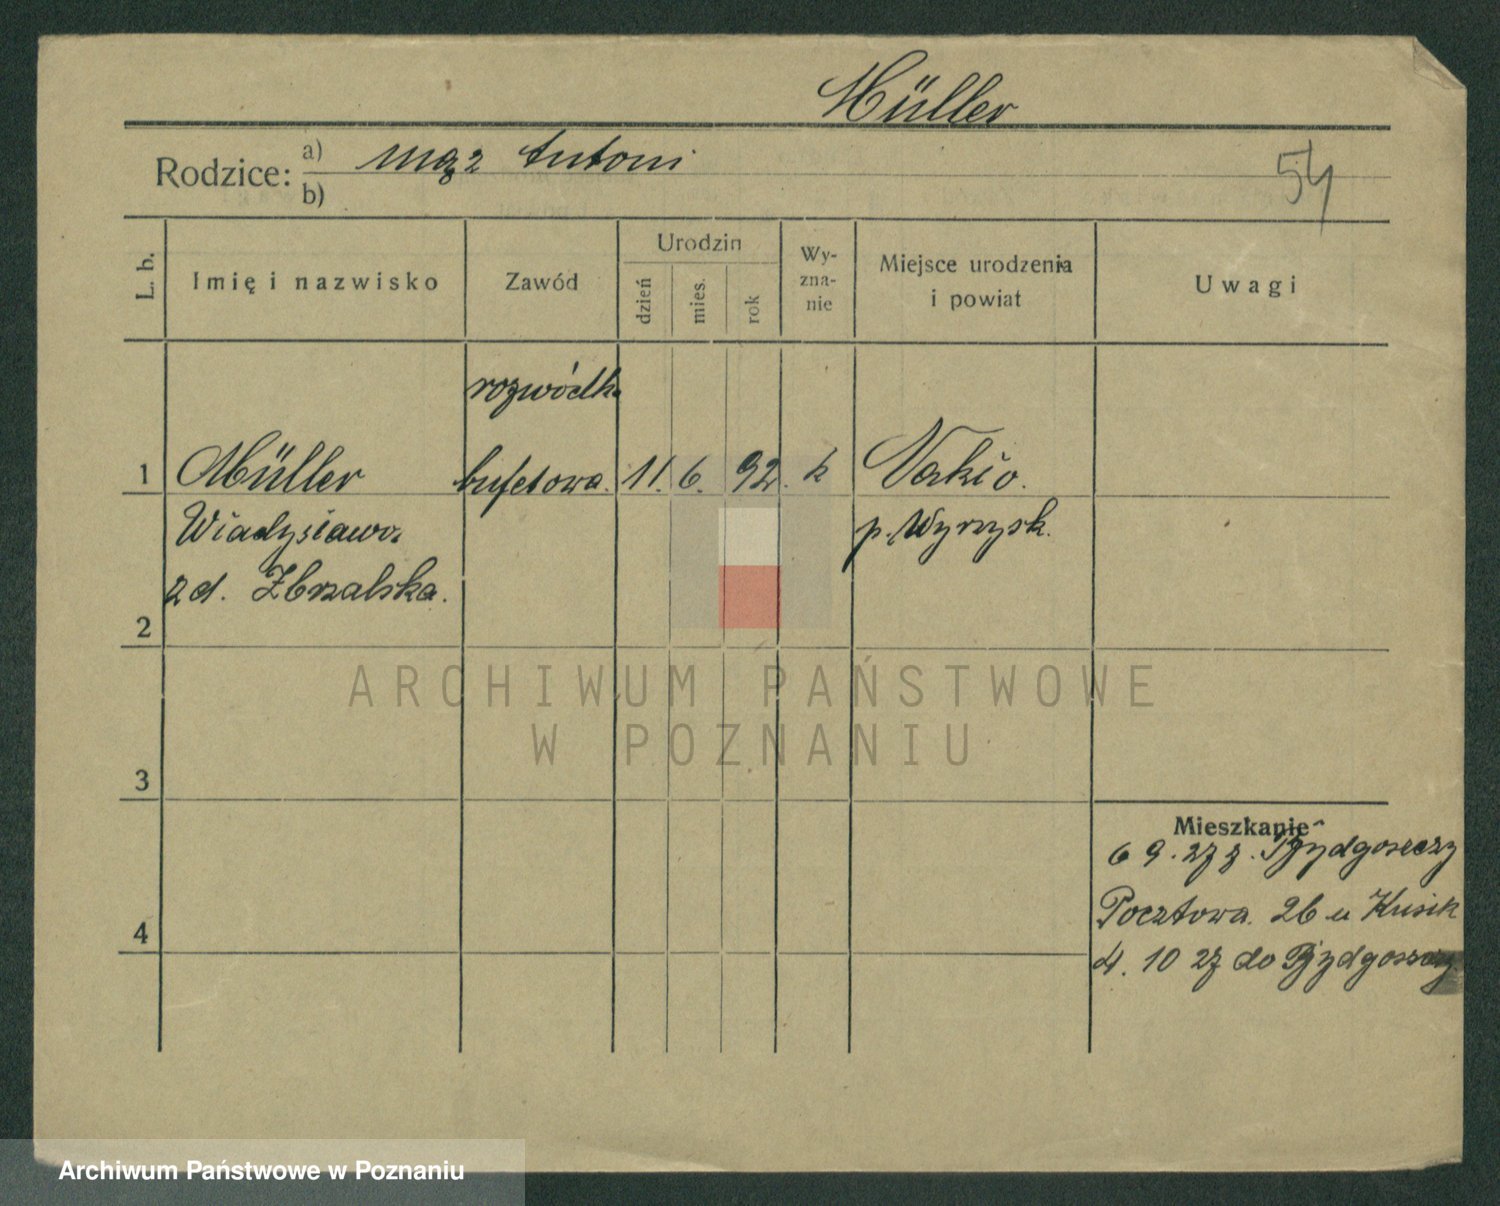 Müller
Rodzice: a) mąz Antoni
b)
54
L. b.
Imię i nazwisko
Zawód
Urodzin
dzień
mies.
rok
Wy-
zna-
nie
Miejsce urodzenia
i powiat
Uwagi
rozwódka
1 Müller bufetowa. 11. 6. 92. k Nakło.
Władysława p. Wyrzysk.
zd. Zbrzalska.
2
3
Mieszkanie
6 9. 27 z. Bydgoszczy
Pocztowa 26 u Kusik
4
4. 10 27 do Bydgoszczy
ARCHIWUM PAŃSTWOWE
W POZNANIU
Archiwum Państwowe w Poznaniu